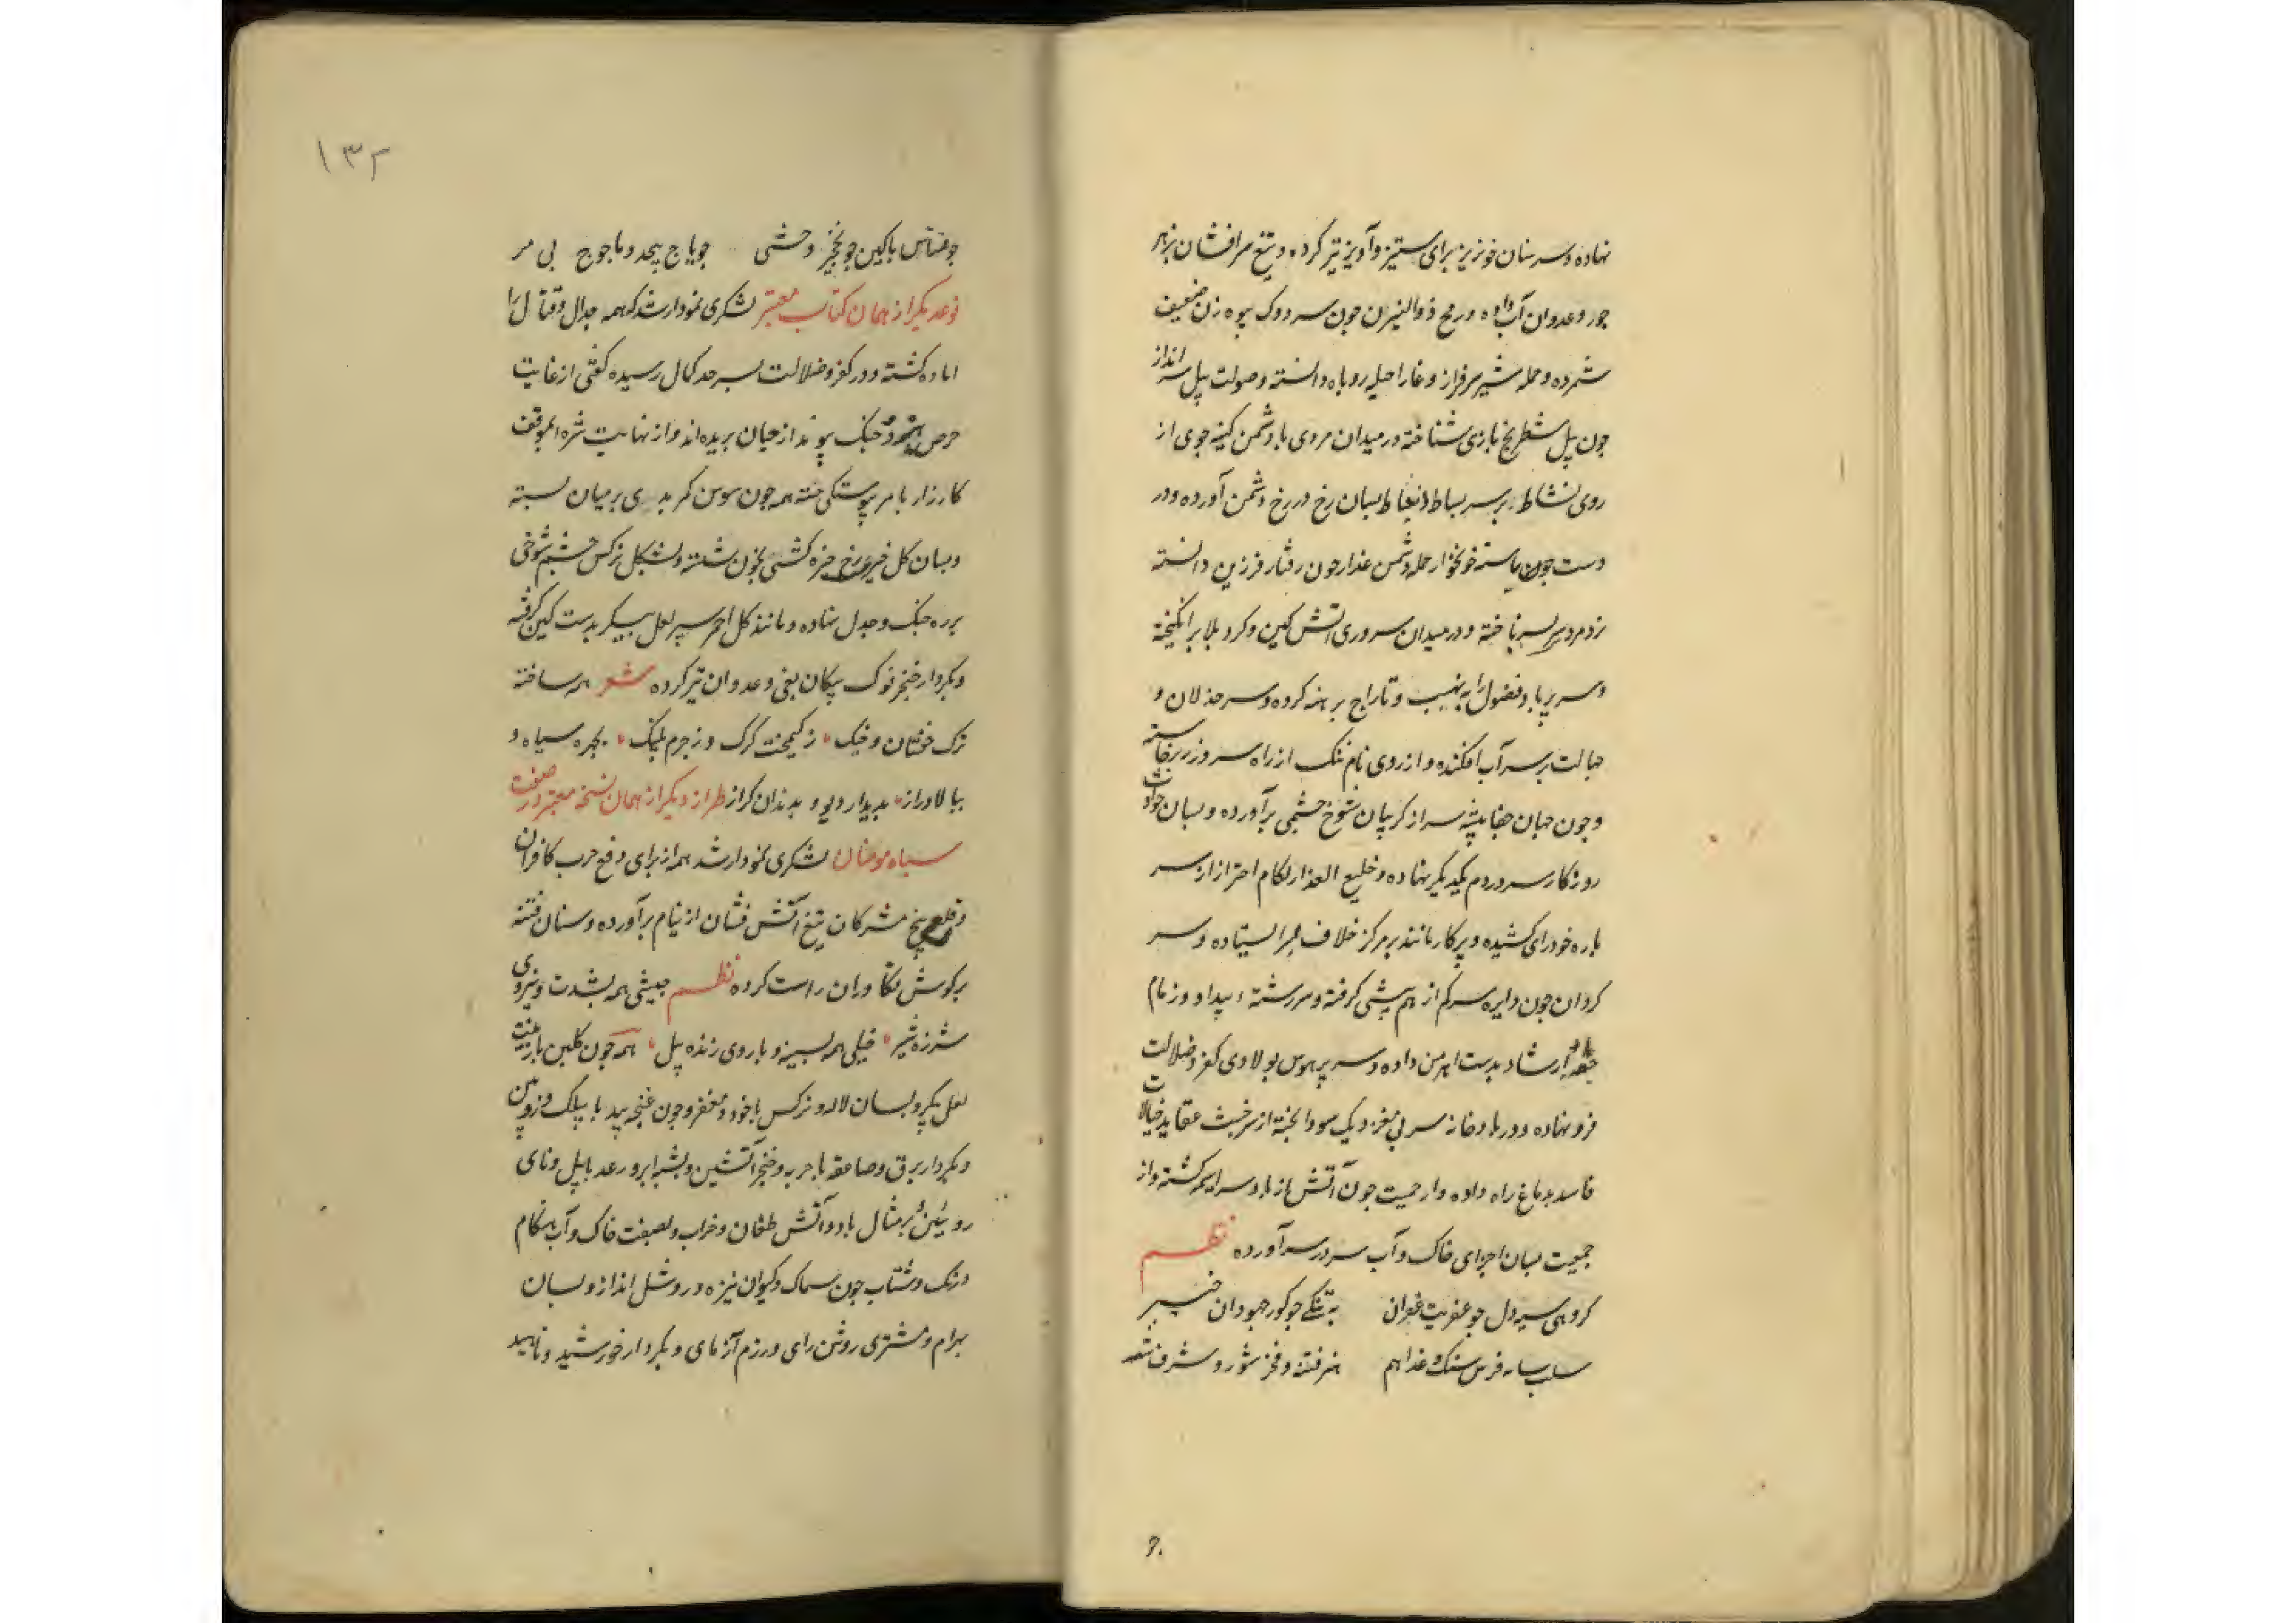 نهاده و سر سنان خونریز برای ستیز و آویز تیز کرده و تیغ سرافشان بزهر
جور و عدوان آب داده و رمح ذوالیزن چون سر دوک بیوه زن ضعیف
شمرده و حمله شیر سرفراز وغا را حیله روباه دانسته و صولت پیل سر انداز
چون پیل شطرنج بازی شناخته در میدان مردی با دشمن کینه جوی از
روی نشاط بر سر بساط انبساط بسان رخ در رخ دشمن آورده و در
دست چون خونخوار حمله دشمن غدار چون رفتار فرزین دانسته
نرد مرد بسر باخته و در میدان سروری آتش کین و کرد بلا برانکیخته
و سر پر باد فضول را به نهیب و تاراج برهنه کرده و سر خذلان و
جهالت بر سر آب افکنده و از روی نام ننک از راه سر وزر برخاسته
و چون جهان جفاپیشه سر از کریبان شوخ چشمی برآورده و بسان حوادث
روزکار سر در دم یکدیکر نهاده و خلیع العذار لکام احتراز از سر
باره خودرای کشیده و پرکار مانند بر مرکز خلاف ایستاده و سر
کردان چون دایره سر کم از هم پیشی کرفته و سر رشته بیداد و زمام
ارشاد بدست اهرمن داده و سر پر هوس بولادی کفر و ضلالت
فرو نهاده و در بادخانه سر بی مغز دیک سودا پخته از سر خبث عقاید خیالات
فاسد بدماغ راه داده و از حمیت چون آتش از باد سراسر کشته و از
جمعیت بسان اجزای خاک و آب سر در سر آورده نظم
کروهی سیه دل چو عفریت غران به تنکی چو کور جهودان خیبر
سلب سنک هم هنر فتنه و فخر شور و شرف شر
۱۳۲
چو نسناس با کین چو نخجیر وحشی چو یاجوج بیحد و ماجوج بی مر
نوعدیکر از همان کتاب معتبر لشکری نمودار شد که همه جدال و قتال را
اماده کشته و در کفر و ضلالت بسر حد کمال رسیده کفتی از غایت
حرص جنک پیوند از جان بریده اند و از نهایت شره الموقف
کارزار با مر پیوستکی جسته همه چون سوسن کمر بدی بر میان بسته
و بسان کل خیری رخ خیره کشی بخون شسته و بشکل نرکس چشم شوخی
بر ره جنک و جدل نهاده و مانند کل احمر سپر لعل پیکر بدست کین کرفته
و بکردار خنجر نوک پیکان بغی و عدوان تیز کرده شعر همه ساخته
ترک خفتان و خنک ز کیمخت کرک و ز چرم پلنک بچهره سیاه و
ببالا دراز بدیدار دیو و بدندان کراز طراز دیکر از همان نسخه معتبر در صفت
سپاه مومنان لشکری نمودار شد همه از برای دفع حرب کافران
و قلع بیخ مشرکان تیغ آتش فشان از نیام برآورده و سنان فتنه
برکوش تکاوران راست کرده نظم جیشی همه بشدت و نیروی
شرزه شیر خیلی همه بسینه و بازوی زنده پیل همه چون کلبن با زینت
لعل پیکر و بسان لاله و نرکس با خود و مغفر و چون غنچه بید با بیلک و زوبین
و بکردار برق و صاعقه با حرب و خنجر آتشین و بشبه ابر و رعد با پیل و نای
روئین و بر مثال باد و آتش طغان و خراب و بصفت خاک و آب هنکام
درنک و شتاب چون سماک و کیوان نیزه ور و شل انداز و بسان
بهرام و مشتری روشن رای و رزم آزمای و بکردار خورشید و ناهید